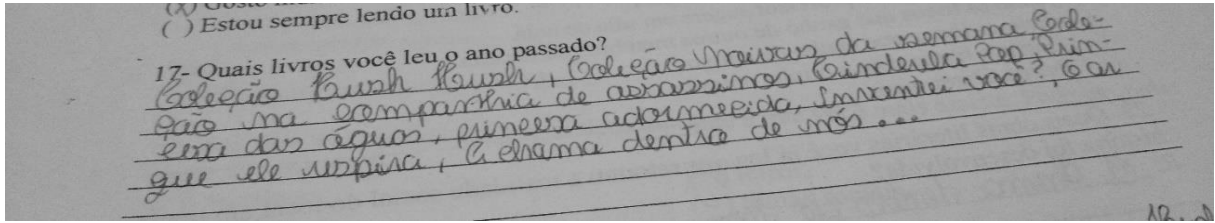 ( ) Estou sempre lendo um livro.
17- Quais livros você leu o ano passado?
Coleção Hush Hush, Coleção Noivas da semana, Cole-
ção na companhia de assassinos, Cinderela Pop, Prin-
cesa das águas, princesa adormecida, Inventei você?, O ar
que ele respira, A chama dentro de nós...